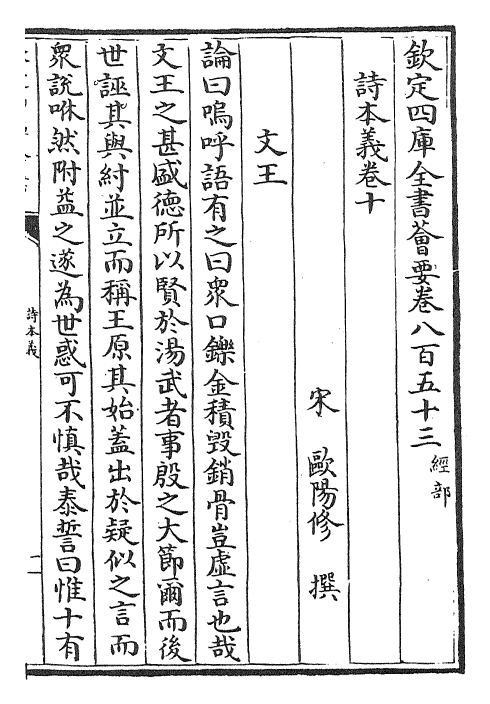 欽定四庫全書薈要卷八百五十三 經部
詩本義卷十
宋 歐陽修 撰
文王
論曰嗚呼語有之曰衆口鑠金積毀銷骨豈虛言也哉
文王之甚盛德所以賢於湯武者事殷之大節爾而後
世誣其與紂並立而稱王原其始蓋出於疑似之言而
衆說咻然附益之遂為世惑可不慎哉泰誓曰惟十有
詩本義